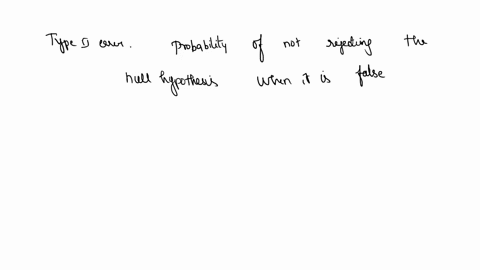 Type II error. Probability of not rejecting the
null hypothesis when it is false